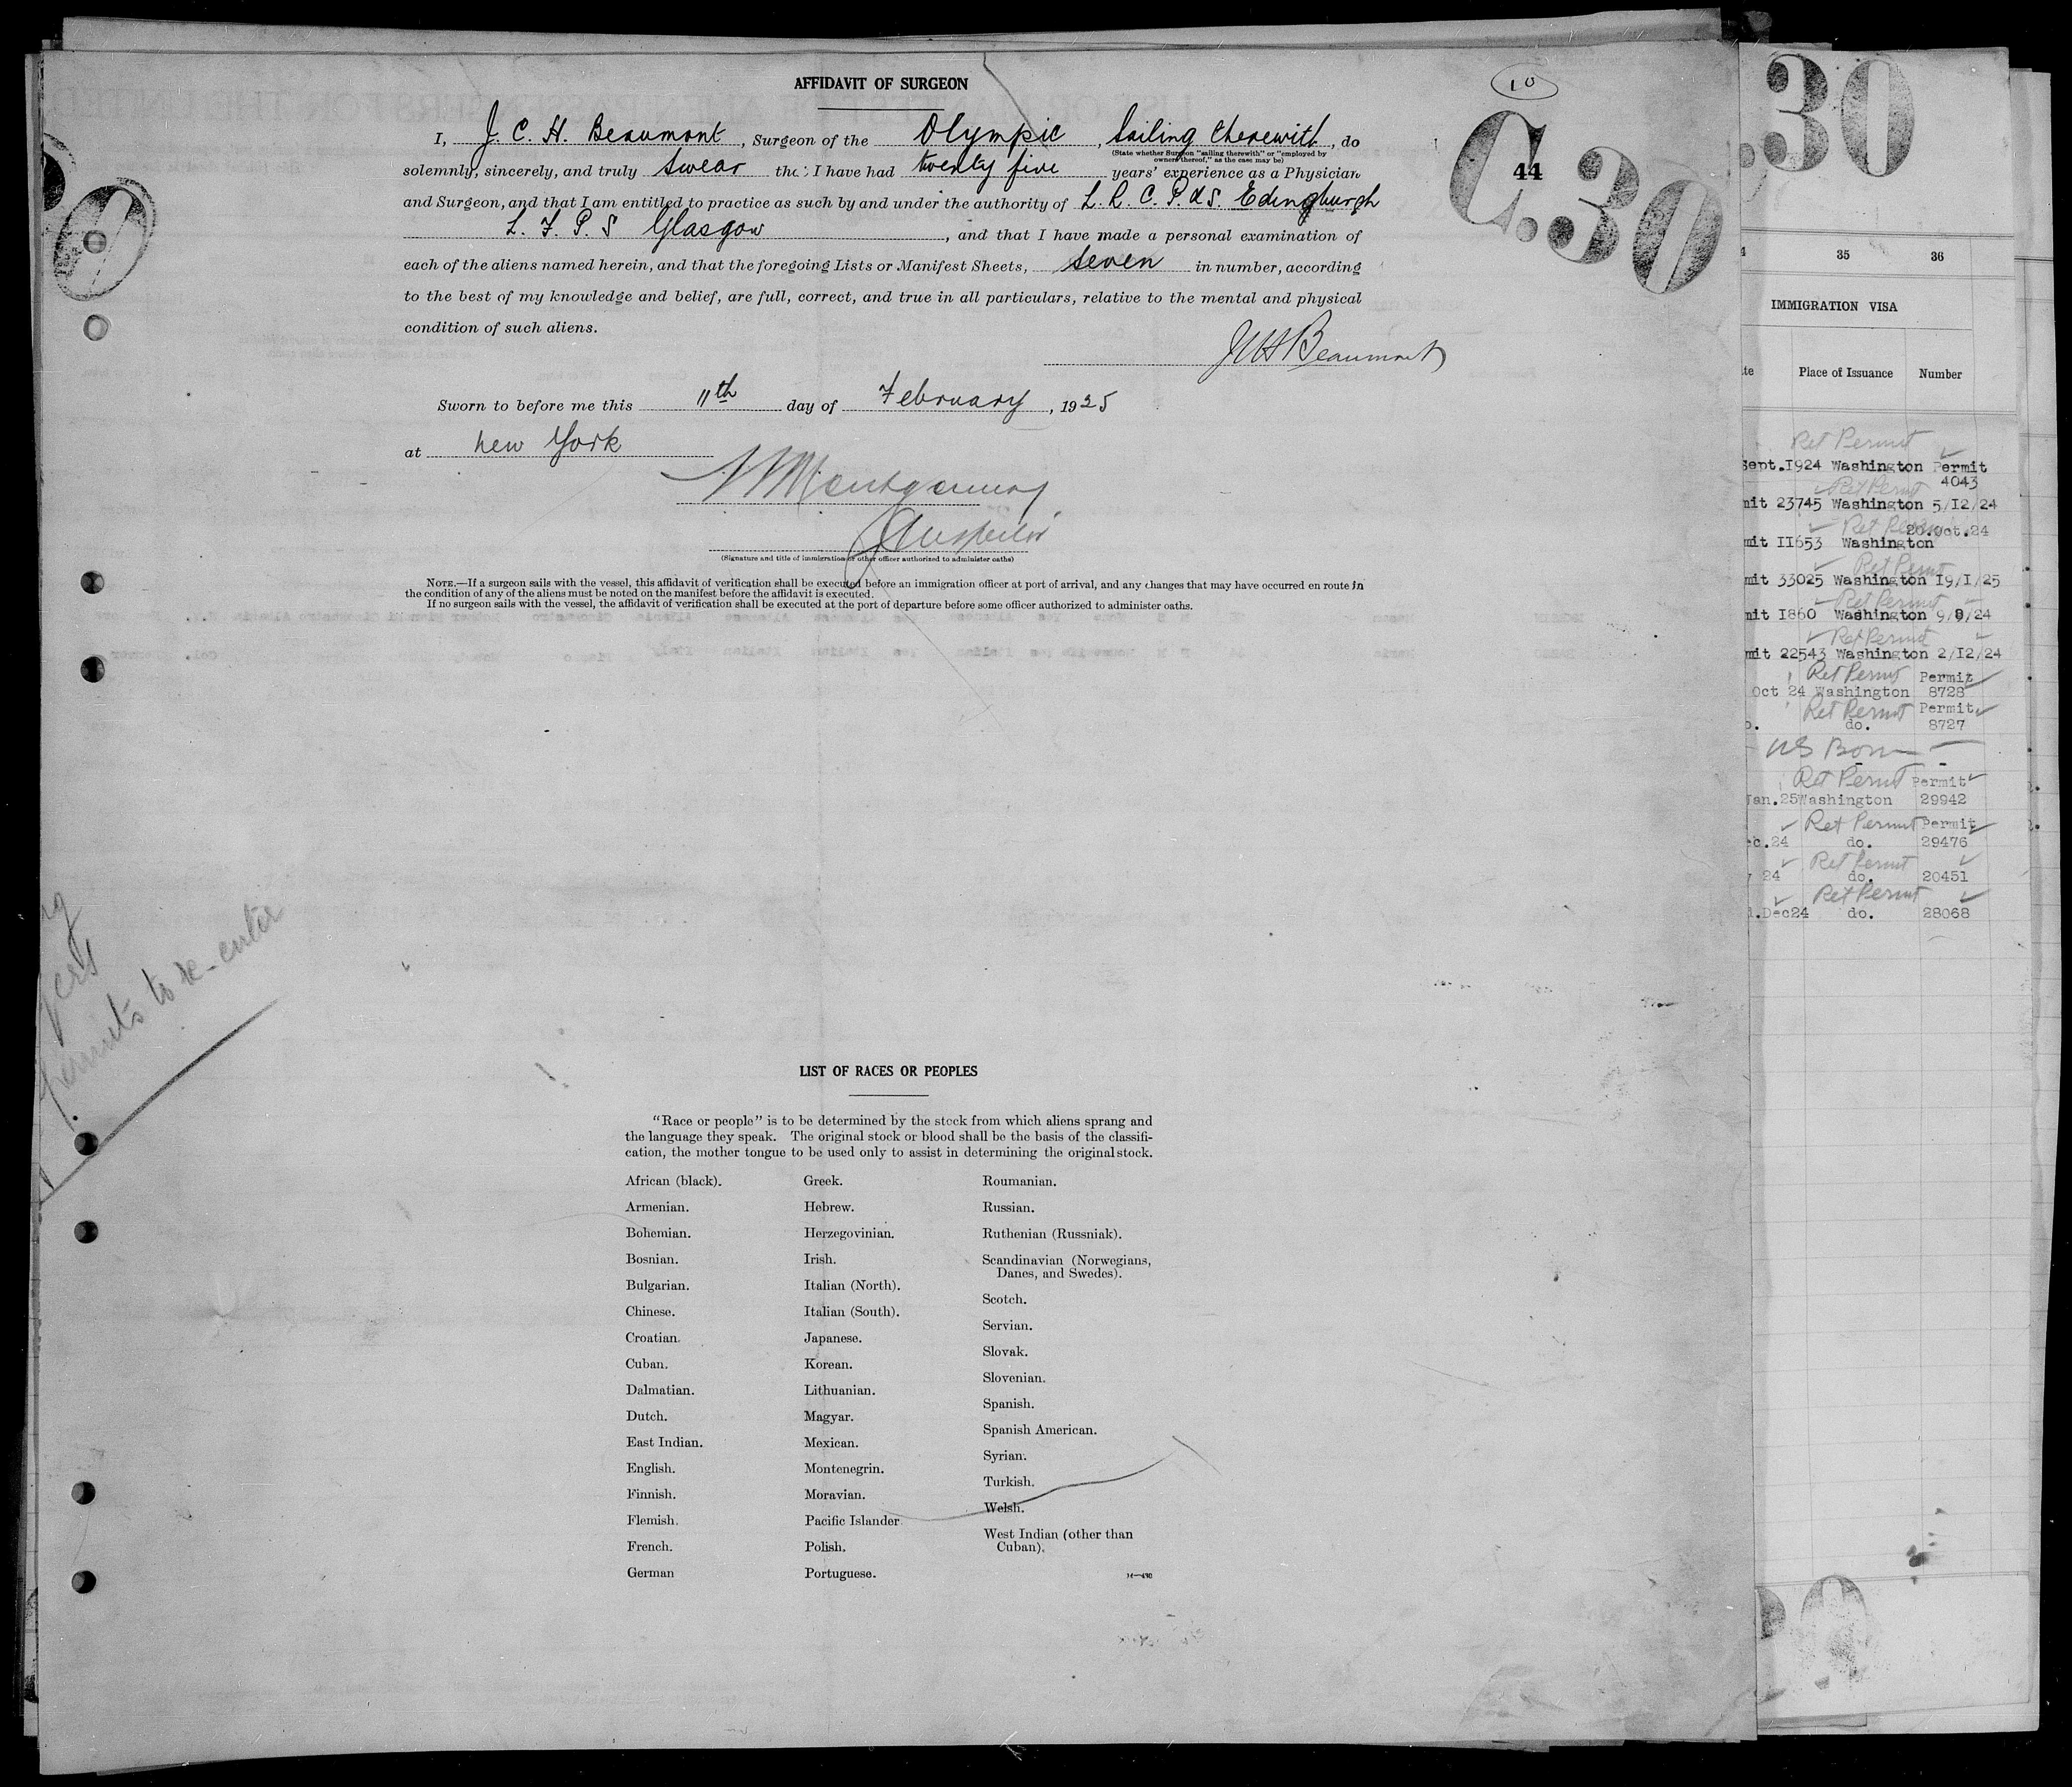 AFFIDAVIT OF SURGEON
10
C.30
44
I, J. C. H. Beaumont, Surgeon of the Olympic, Sailing therewith, do
(State whether Surgeon "sailing therewith" or "employed by
owners thereof," as the case may be)
solemnly, sincerely, and truly swear that I have had twenty five years' experience as a Physician
and Surgeon, and that I am entitled to practice as such by and under the authority of L. R. C. P. & S. Edinghurgh
L. F. P. S Glasgow, and that I have made a personal examination of
each of the aliens named herein, and that the foregoing Lists or Manifest Sheets, seven in number, according
to the best of my knowledge and belief, are full, correct, and true in all particulars, relative to the mental and physical
condition of such aliens.
JCHBeaumont
Sworn to before me this 11th day of February, 1925
at New York
Montgomery
Inspector
(Signature and title of immigration or other officer authorized to administer oaths)
NOTE.—If a surgeon sails with the vessel, this affidavit of verification shall be executed before an immigration officer at port of arrival, and any changes that may have occurred en route in
the condition of any of the aliens must be noted on the manifest before the affidavit is executed.
If no surgeon sails with the vessel, the affidavit of verification shall be executed at the port of departure before some officer authorized to administer oaths.
permits to re-enter
LIST OF RACES OR PEOPLES
"Race or people" is to be determined by the stock from which aliens sprang and
the language they speak. The original stock or blood shall be the basis of the classifi-
cation, the mother tongue to be used only to assist in determining the original stock.
African (black).
Armenian.
Bohemian.
Bosnian.
Bulgarian.
Chinese.
Croatian.
Cuban.
Dalmatian.
Dutch.
East Indian.
English.
Finnish.
Flemish.
French.
German
Greek.
Hebrew.
Herzegovinian.
Irish.
Italian (North).
Italian (South).
Japanese.
Korean.
Lithuanian.
Magyar.
Mexican.
Montenegrin.
Moravian.
Pacific Islander.
Polish.
Portuguese.
Roumanian.
Russian.
Ruthenian (Russniak).
Scandinavian (Norwegians,
Danes, and Swedes).
Scotch.
Servian.
Slovak.
Slovenian.
Spanish.
Spanish American.
Syrian.
Turkish.
Welsh.
West Indian (other than
Cuban).
.30
35 36
IMMIGRATION VISA
Place of Issuance Number
Ret Permit
Sept.1924 Washington Permit
4043
Ret Permit
mit 23745 Washington 5/12/24
Ret Permit 20.Oct.24
mit II653 Washington
Ret Permit
mit 33025 Washington I9/I/25
Ret Permit
mit I860 Washington 9/9/24
Ret Permit
mit 22543 Washington 2/I2/24
Ret Permit Permit
Oct 24 Washington 8728
Ret Permit Permit
do. 8727
US Born
Ret Permit Permit
Jan.25 Washington 29942
Ret Permit Permit
ec.24 do. 29476
Ret Permit
24 do. 20451
Ret Permit
.Dec24 do. 28068